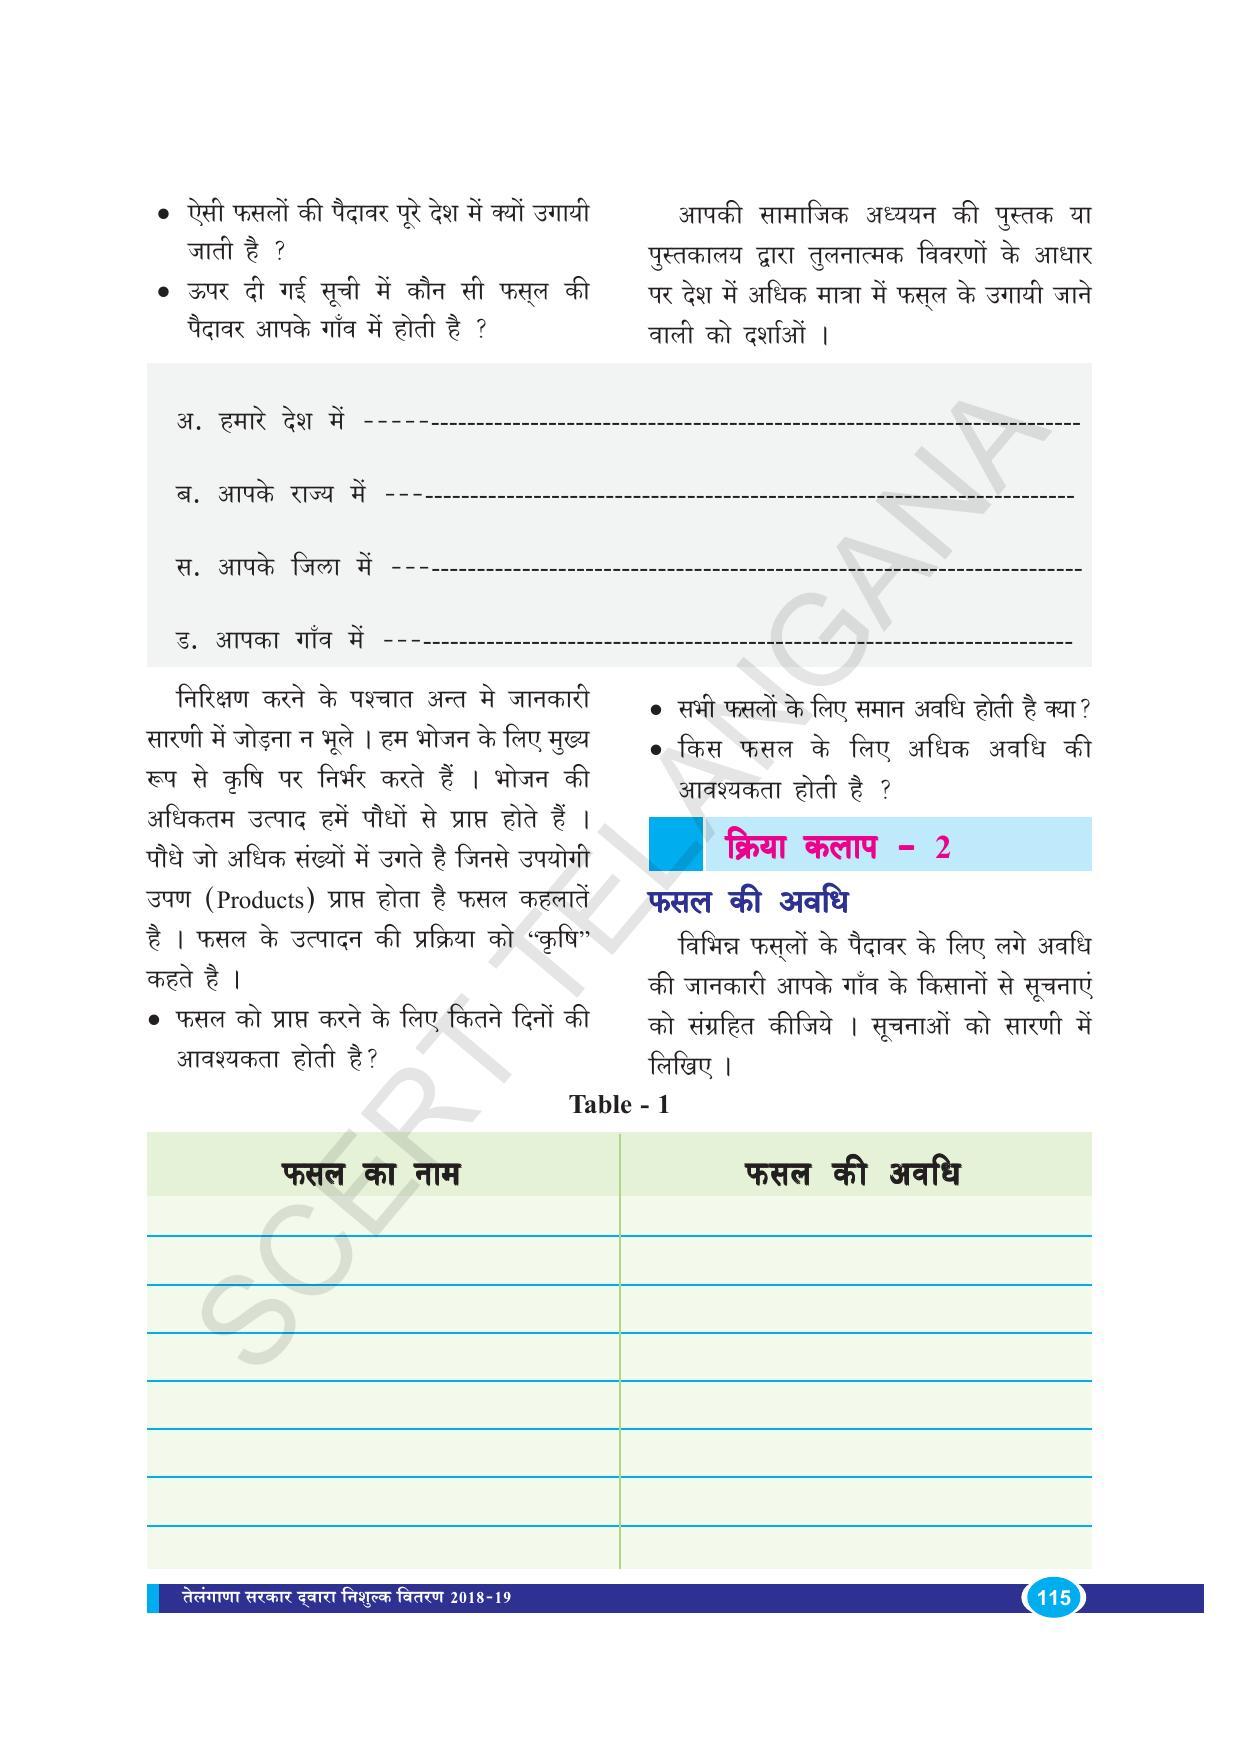 • ऐसी फसलों की पैदावर पूरे देश में क्यों उगायी
जाती है ?
• ऊपर दी गई सूची में कौन सी फस्ल की
पैदावर आपके गाँव में होती है ?
आपकी सामाजिक अध्ययन की पुस्तक या
पुस्तकालय द्वारा तुलनात्मक विवरणों के आधार
पर देश में अधिक मात्रा में फस्ल के उगायी जाने
वाली को दर्शाओं ।
अ. हमारे देश में -----------------------------------------------------------------------------
ब. आपके राज्य में ---------------------------------------------------------------------------
स. आपके जिला में ---------------------------------------------------------------------------
ड. आपका गाँव में ---------------------------------------------------------------------------
निरिक्षण करने के पश्चात अन्त मे जानकारी
सारणी में जोड़ना न भूले । हम भोजन के लिए मुख्य
रूप से कृषि पर निर्भर करते हैं । भोजन की
अधिकतम उत्पाद हमें पौधों से प्राप्त होते हैं ।
पौधे जो अधिक संख्यों में उगते है जिनसे उपयोगी
उपण (Products) प्राप्त होता है फसल कहलातें
है । फसल के उत्पादन की प्रक्रिया को “कृषि”
कहते है ।
• फसल को प्राप्त करने के लिए कितने दिनों की
आवश्यकता होती है?
• सभी फसलों के लिए समान अवधि होती है क्या?
• किस फसल के लिए अधिक अवधि की
आवश्यकता होती है ?
क्रिया कलाप - 2
फसल की अवधि
विभिन्न फस्लों के पैदावर के लिए लगे अवधि
की जानकारी आपके गाँव के किसानों से सूचनाएं
को संग्रहित कीजिये । सूचनाओं को सारणी में
लिखिए ।
Table - 1
फसल का नाम फसल की अवधि
तेलंगाणा सरकार द्वारा निशुल्क वितरण 2018-19
115
SCERT TELANGANA